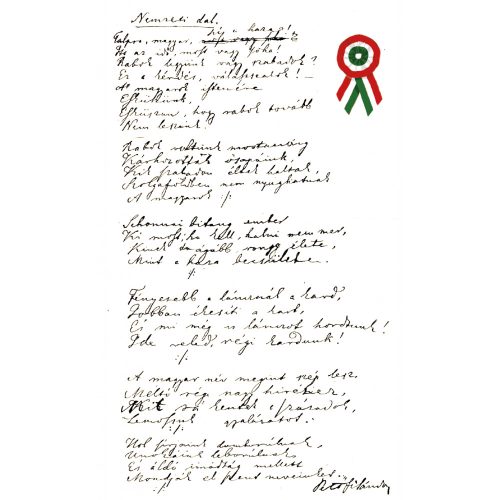 Nemzeti dal.
Talpra, magyar, hí a haza!
Itt az idő, most vagy soha!
Rabok legyünk vagy szabadok?
Ez a kérdés, válasszatok! –
A magyarok istenére
Esküszünk,
Esküszünk, hogy rabok tovább
Nem leszünk!
Rabok voltunk mostanáig
Kárhozottak ősapáink,
Kik szabadon éltek haltak,
Szolgaföldben nem nyughatnak
A magyarok :/:
Sehonnai bitang ember
Ki most, ha kell, halni nem mer,
Kinek drágább rongy élete,
Mint a haza becsülete.
:/:
Fényesebb a láncznál a kard,
Jobban ékesíti a kart,
És mi még is lánczot hordtunk!
Ide veled, régi kardunk!
:/:
A magyar név megint szép lesz,
Méltó régi nagy hiréhez,
Mit rá kentek a századok,
Lemossuk gyalázatot.
:/:
Hol sírjaink domborulnak,
Unokáink leborulnak,
És áldó imádság mellett
Mondják el szent neveinket.
Petőfi Sándor